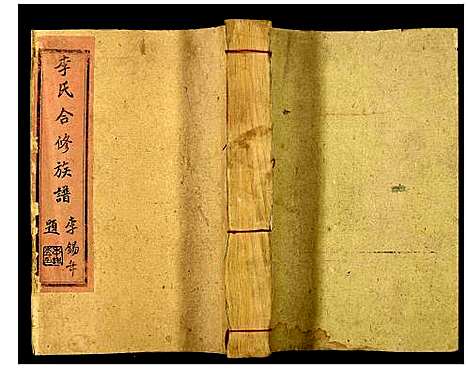 李氏合修族譜
李錫年
題